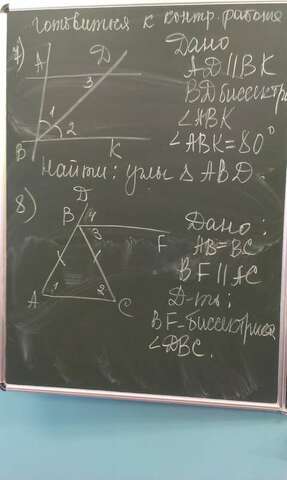 готовиться к контр. работе
7) A D Дано
3 AD || BK
BD биссектр
1 2 ∠ABK
B K ∠ABK=80°
Найти: углы ∆ ABD.
8) D
B 4 Дано:
3 F AB=BC
BF || AC
A 1 2 C Д-ть:
BF-биссектриса
∠DBC.